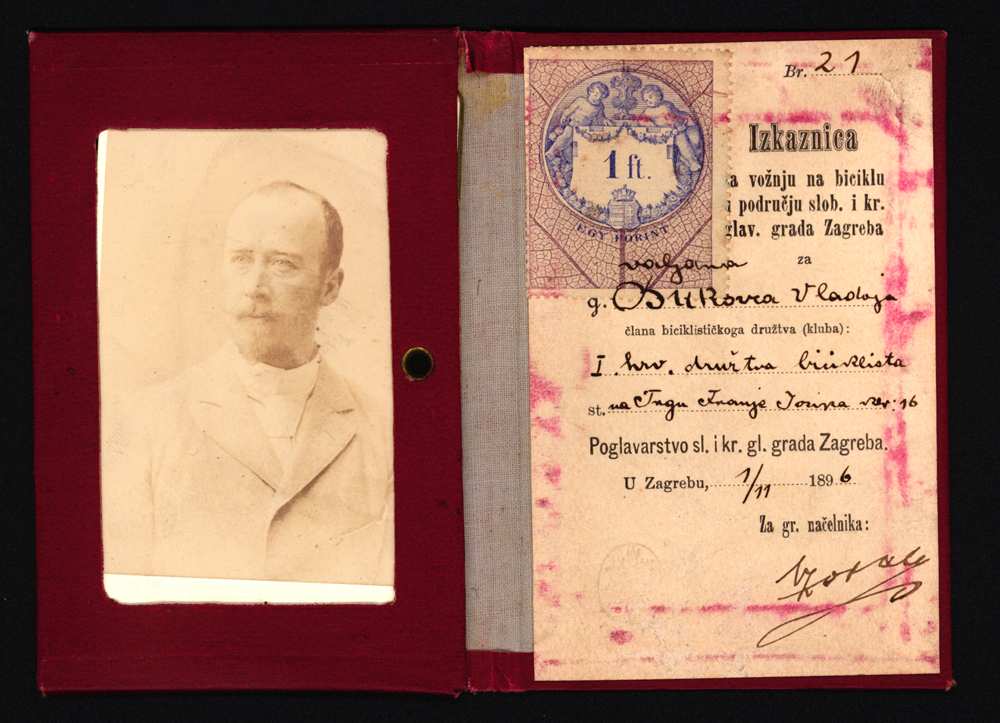 Br. 21
1 ft.
EGY FORINT
Izkaznica
a vožnju na biciklu
i području slob. i kr.
glav. grada Zagreba
valjana za
g. Bukovca Vladoja
člana biciklističkoga družtva (kluba):
I. hrv. družtva biciklista
st. na Trgu Franje Josipa 16
Poglavarstvo sl. i kr. gl. grada Zagreba.
U Zagrebu, 1/11 1896
Za gr. načelnika: